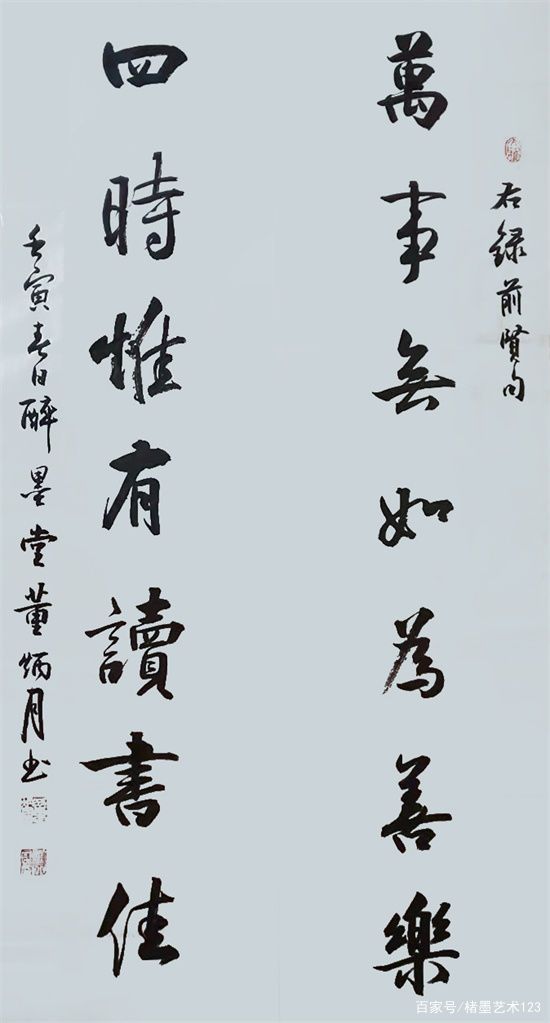 右録前賢句
萬事無如為善樂
四時惟有讀書佳
壬寅春日醉墨堂董炳月书
百家号/楮墨艺术123